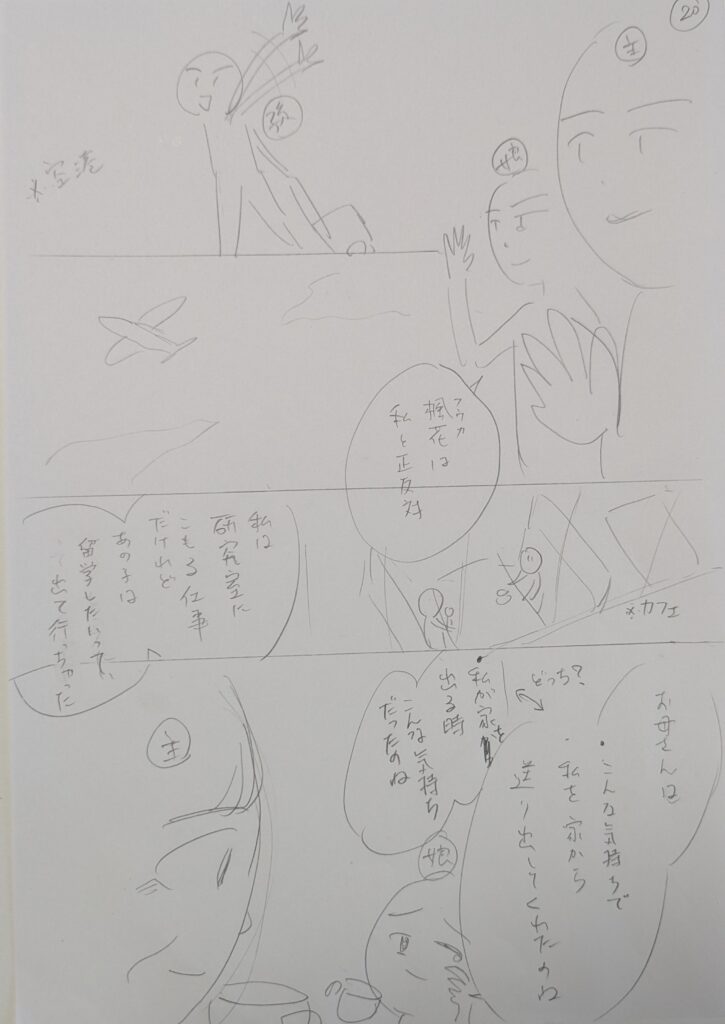 20
主
娘
孫
※空港
フウカ
楓花は
私と正反対
※カフェ
私は
研究室に
こもる仕事
だけれど
あの子は
留学したいって、
出て行っちゃった
お母さんは
・こんな気持ちで
・私を家から
送り出してくれたのね
どっち?
・私が家を
出る時
こんな気持ち
だったのね
主
娘